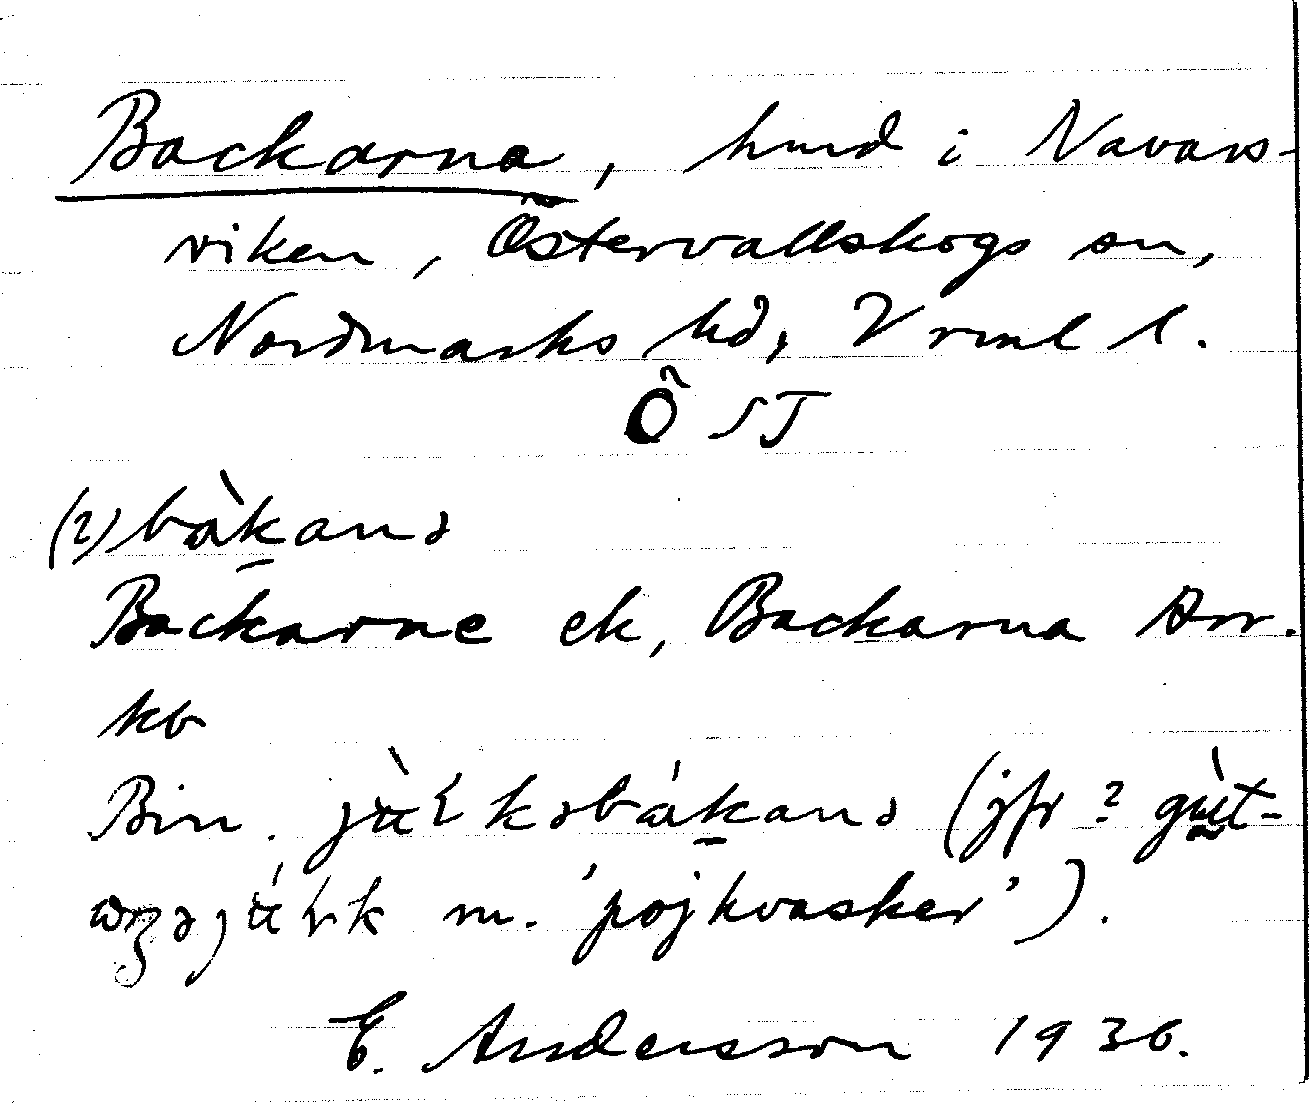 Backarna, hmd i Navars-
viken, Östervallskogs sn,
Nordmarks hd, Vrml l.
Ö ST
(2) bàkanə
Backarne ek, Backarna Arr.
kb
Bin. (jfr ?
m. 'pojkvasker').
E. Andersson 1936.